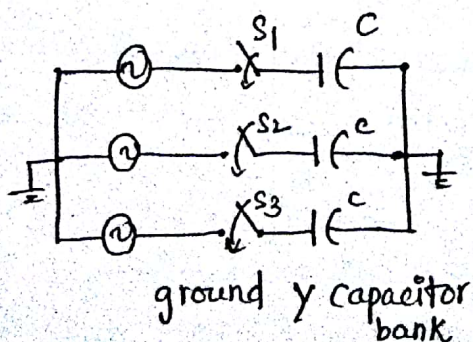 S1 C
S2 c
S3 c
ground Y capacitor
bank